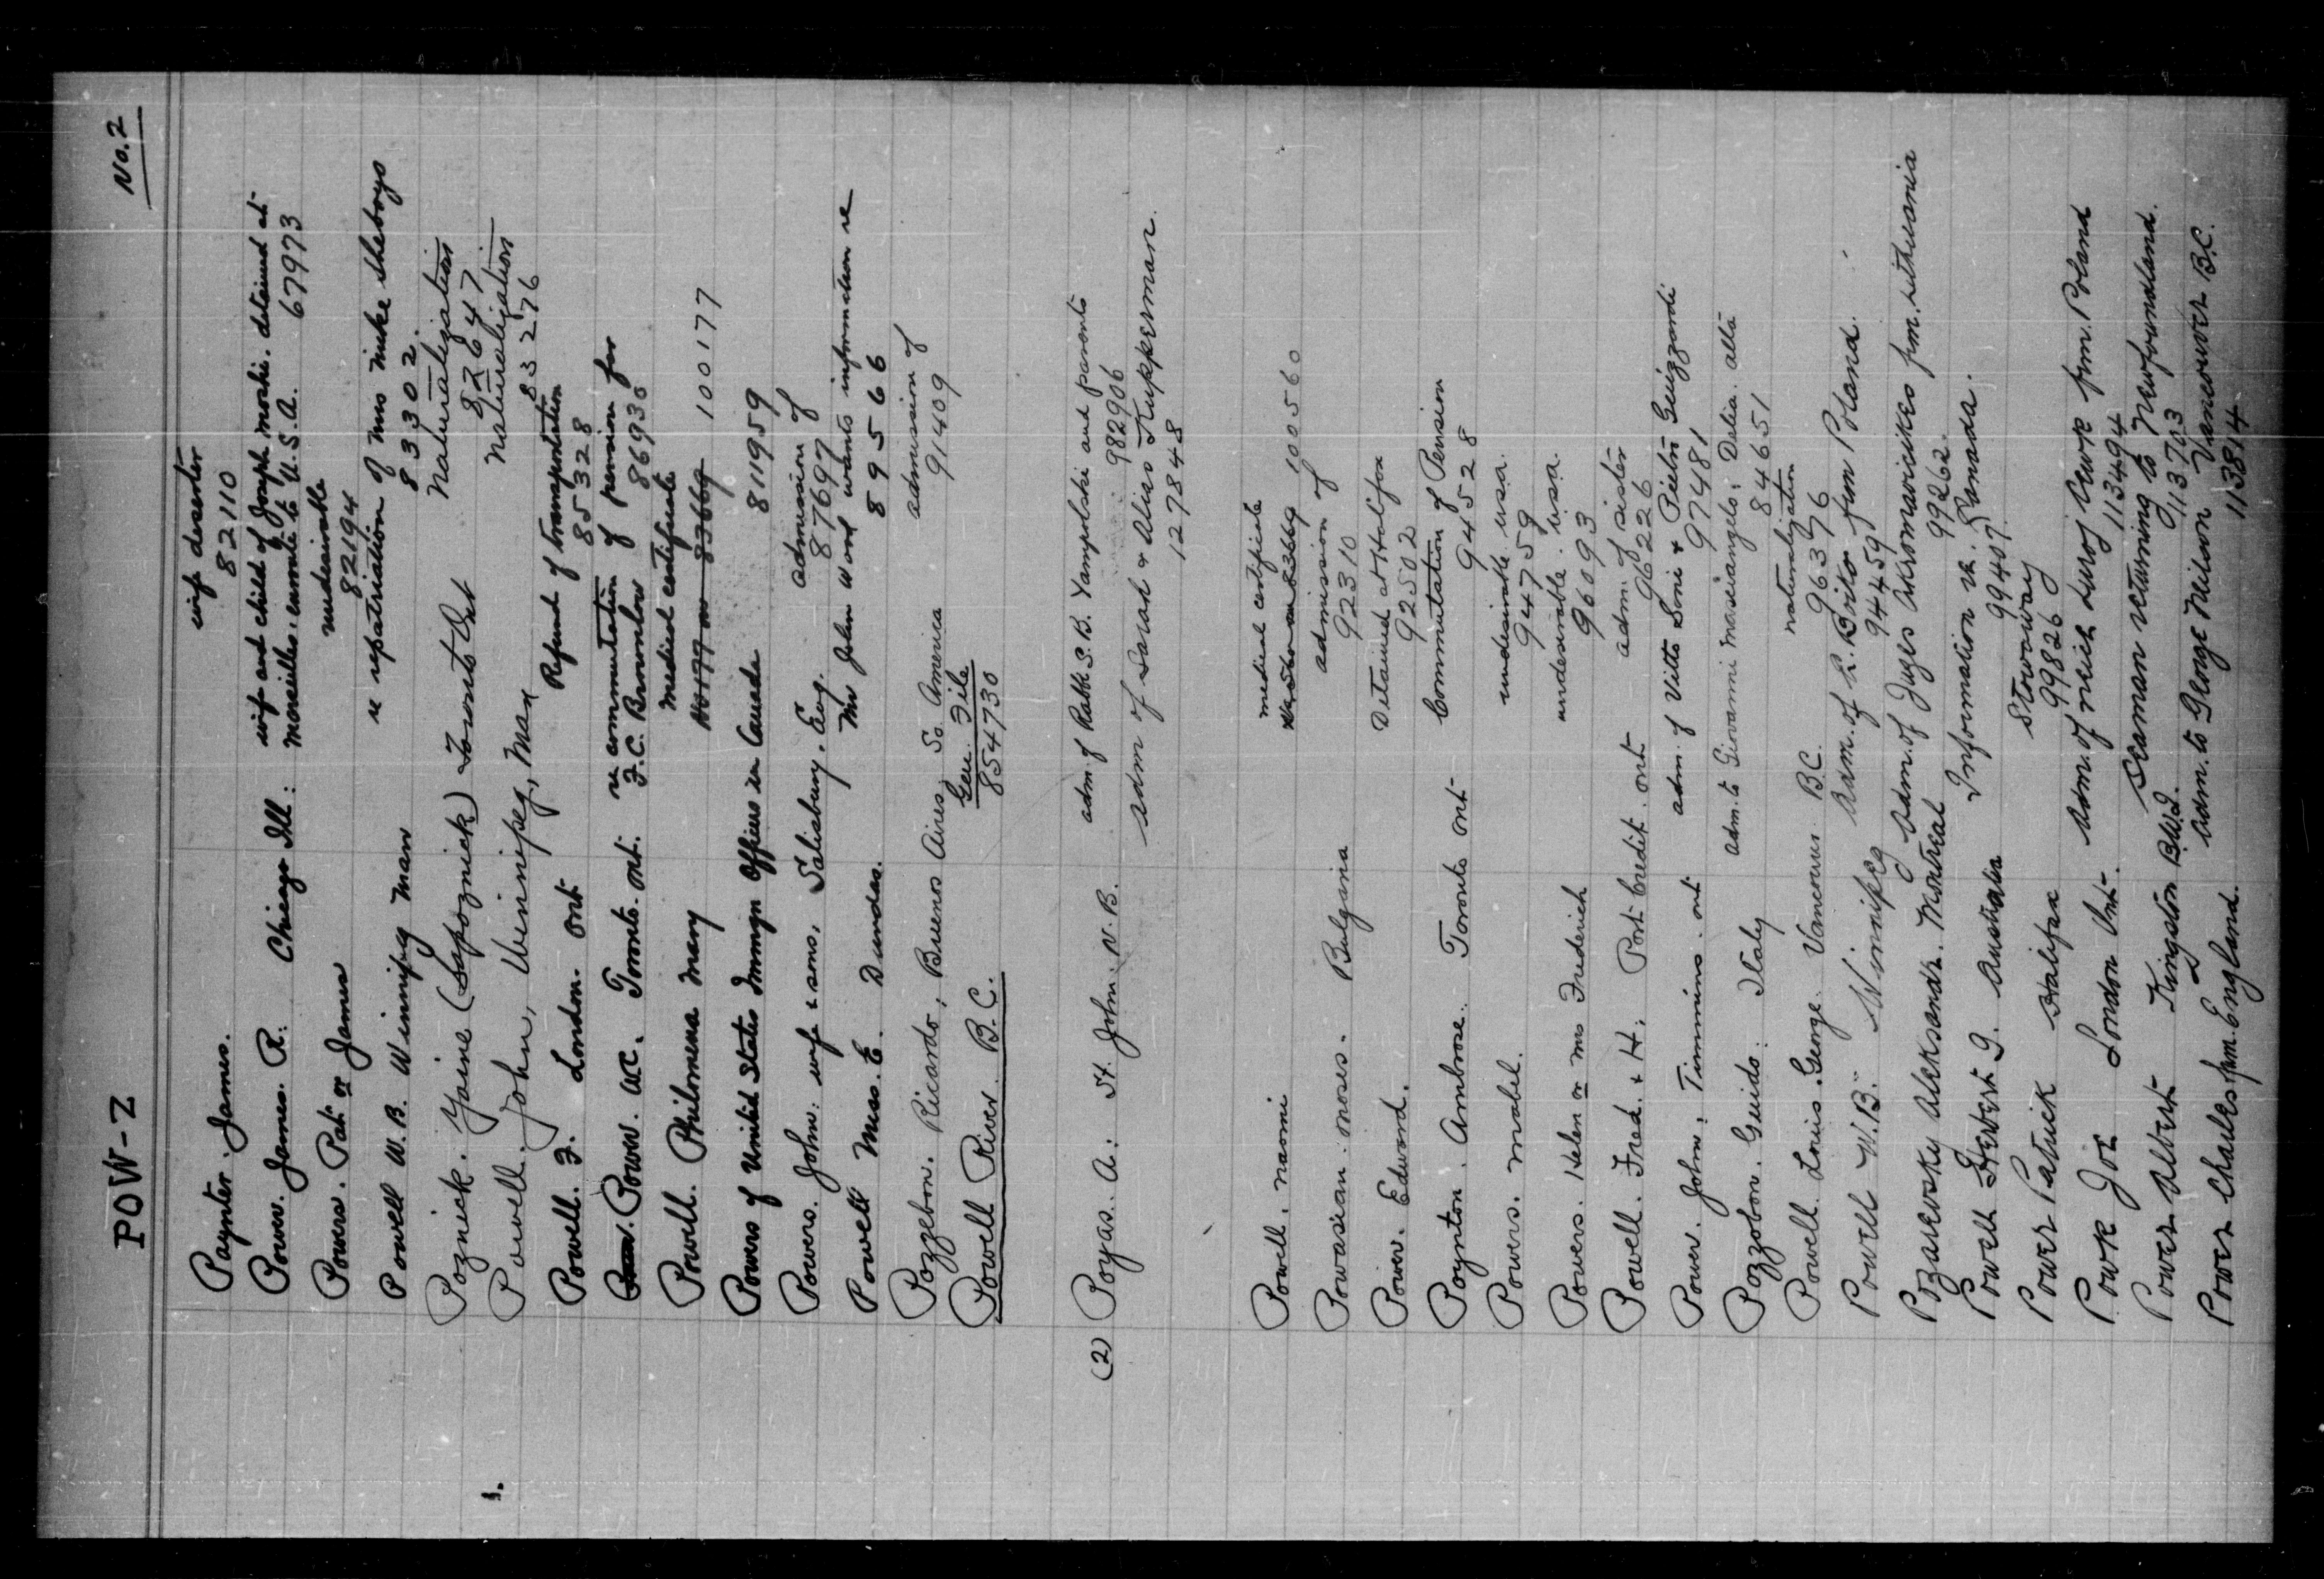 POW-Z
No. 2
wife deserter
Paynter. James.
82110
Power. James. R. Chicago Ill: wife and child of Joseph Moshi. detained at
Marseilles. enroute to U.S.A. 67973
Powers. Pat or James undesirable
82194
Powell W. B. Winnipeg Man re repatriation of Mrs Mike Sheborys
83302.
Poznick. Yaine (Sapoznick) Toronto Ont Naturalization
82647
Powell. John, Winnipeg, Man Naturalization
83276
Powell. F. London. Ont Refund of transportation
85328
Power. W.C. Toronto. Ont. re commutation of pension for
F.C. Brownlow 86930
Powell. Philomena Mary medical certificate
83669 100177
Powers of United States Immgn Officers in Canada 811959
Powers. John: wife & sons, Salisbury. Eng. admission of
87697
Powell Miss. E. Dundas. Mr John Ward wants information re
89566
Pozzebon. Ricardo, Buenos Aires, So. America admission of
91409
Powell River B.C. Gen. File
854730
(2) Poyas. A: St. John. N.B. adm. of Rabbi S.B. Yampolski and parents
982906
adm of Sarah & Alias Kupperman.
127848
Powell. Naomi medical certificate
83669 100560
Powasian. Moses. Bulgaria admission of
92310
Power. Edward. Detained at Halifax
92502
Poynton. Ambrose. Toronto Ont Commutation of Pension
94528
Powers. Mabel. undesirable USA.
94759
Powers. Helen or Mrs Frederich undesirable. USA.
96093
Powell. Fred. & H. Port Credit. Ont adm. of sister
96226
Power. John, Timmins. Ont adm. of Vitto Soni & Pietro Guizzardi
97481
Pozzobon. Guido. Italy adm. to Giovanni Moseiangelo: Delia. Alta
84651
Powell. Louis. George. Vancouver B.C. naturalization
96376
Powell W.B. Winnipeg adm. of L. Brito frm Poland.
94459
Pozarevsky Aleksandr. Montreal adm. of Juzes Akromavickes frm. Lithuania
99262
Powell Herbert G. Australia Information re. Canada.
99407
Power Patrick Halifax Stowaway
99826
Powk Joe London Ont. adm. of Meich Luroj Awk frm. Poland
113494
Power Albert Kingston B.W.I. Seaman returning to Newfoundland.
113703
Power Charles frm. England. adm. to George Nilson Vancouver B.C.
113814